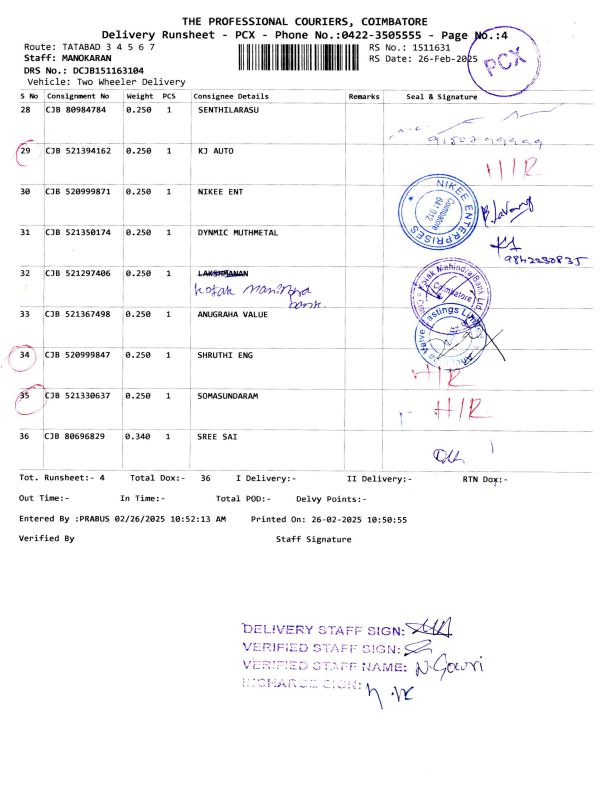 THE PROFESSIONAL COURIERS, COIMBATORE
Delivery Runsheet - PCX - Phone No.:0422-3505555 - Page No.:4
Route: TATABAD 3 4 5 6 7
RS No.: 1511631
Staff: MANOKARAN
RS Date: 26-Feb-2025
PCX
DRS No.: DCJB151163104
Vehicle: Two Wheeler Delivery
S No Consignment No Weight PCS Consignee Details Remarks Seal & Signature
28 CJB 80984784 0.250 1 SENTHILARASU
29 CJB 521394162 0.250 1 KJ AUTO H/R
30 CJB 520999871 0.250 1 NIKEE ENT
NIKEE ENTERPRISES
Coimbatore
641 012
31 CJB 521350174 0.250 1 DYNMIC MUTHMETAL
9842230835
32 CJB 521297406 0.250 1 LAKSHMANAN
Kotak Mahindra
bank
Kotak Mahindra Bank Ltd
Coimbatore
33 CJB 521367498 0.250 1 ANUGRAHA VALUE
34 CJB 520999847 0.250 1 SHRUTHI ENG H/R
35 CJB 521330637 0.250 1 SOMASUNDARAM H/R
36 CJB 80696829 0.340 1 SREE SAI
Tot. Runsheet:- 4 Total Dox:- 36 I Delivery:- II Delivery:- RTN Dox:-
Out Time:- In Time:- Total POD:- Delvy Points:-
Entered By :PRABUS 02/26/2025 10:52:13 AM Printed On: 26-02-2025 10:50:55
Verified By Staff Signature
DELIVERY STAFF SIGN:
VERIFIED STAFF SIGN:
VERIFIED STAFF NAME: N.Gowri
INCHARGE SIGN: